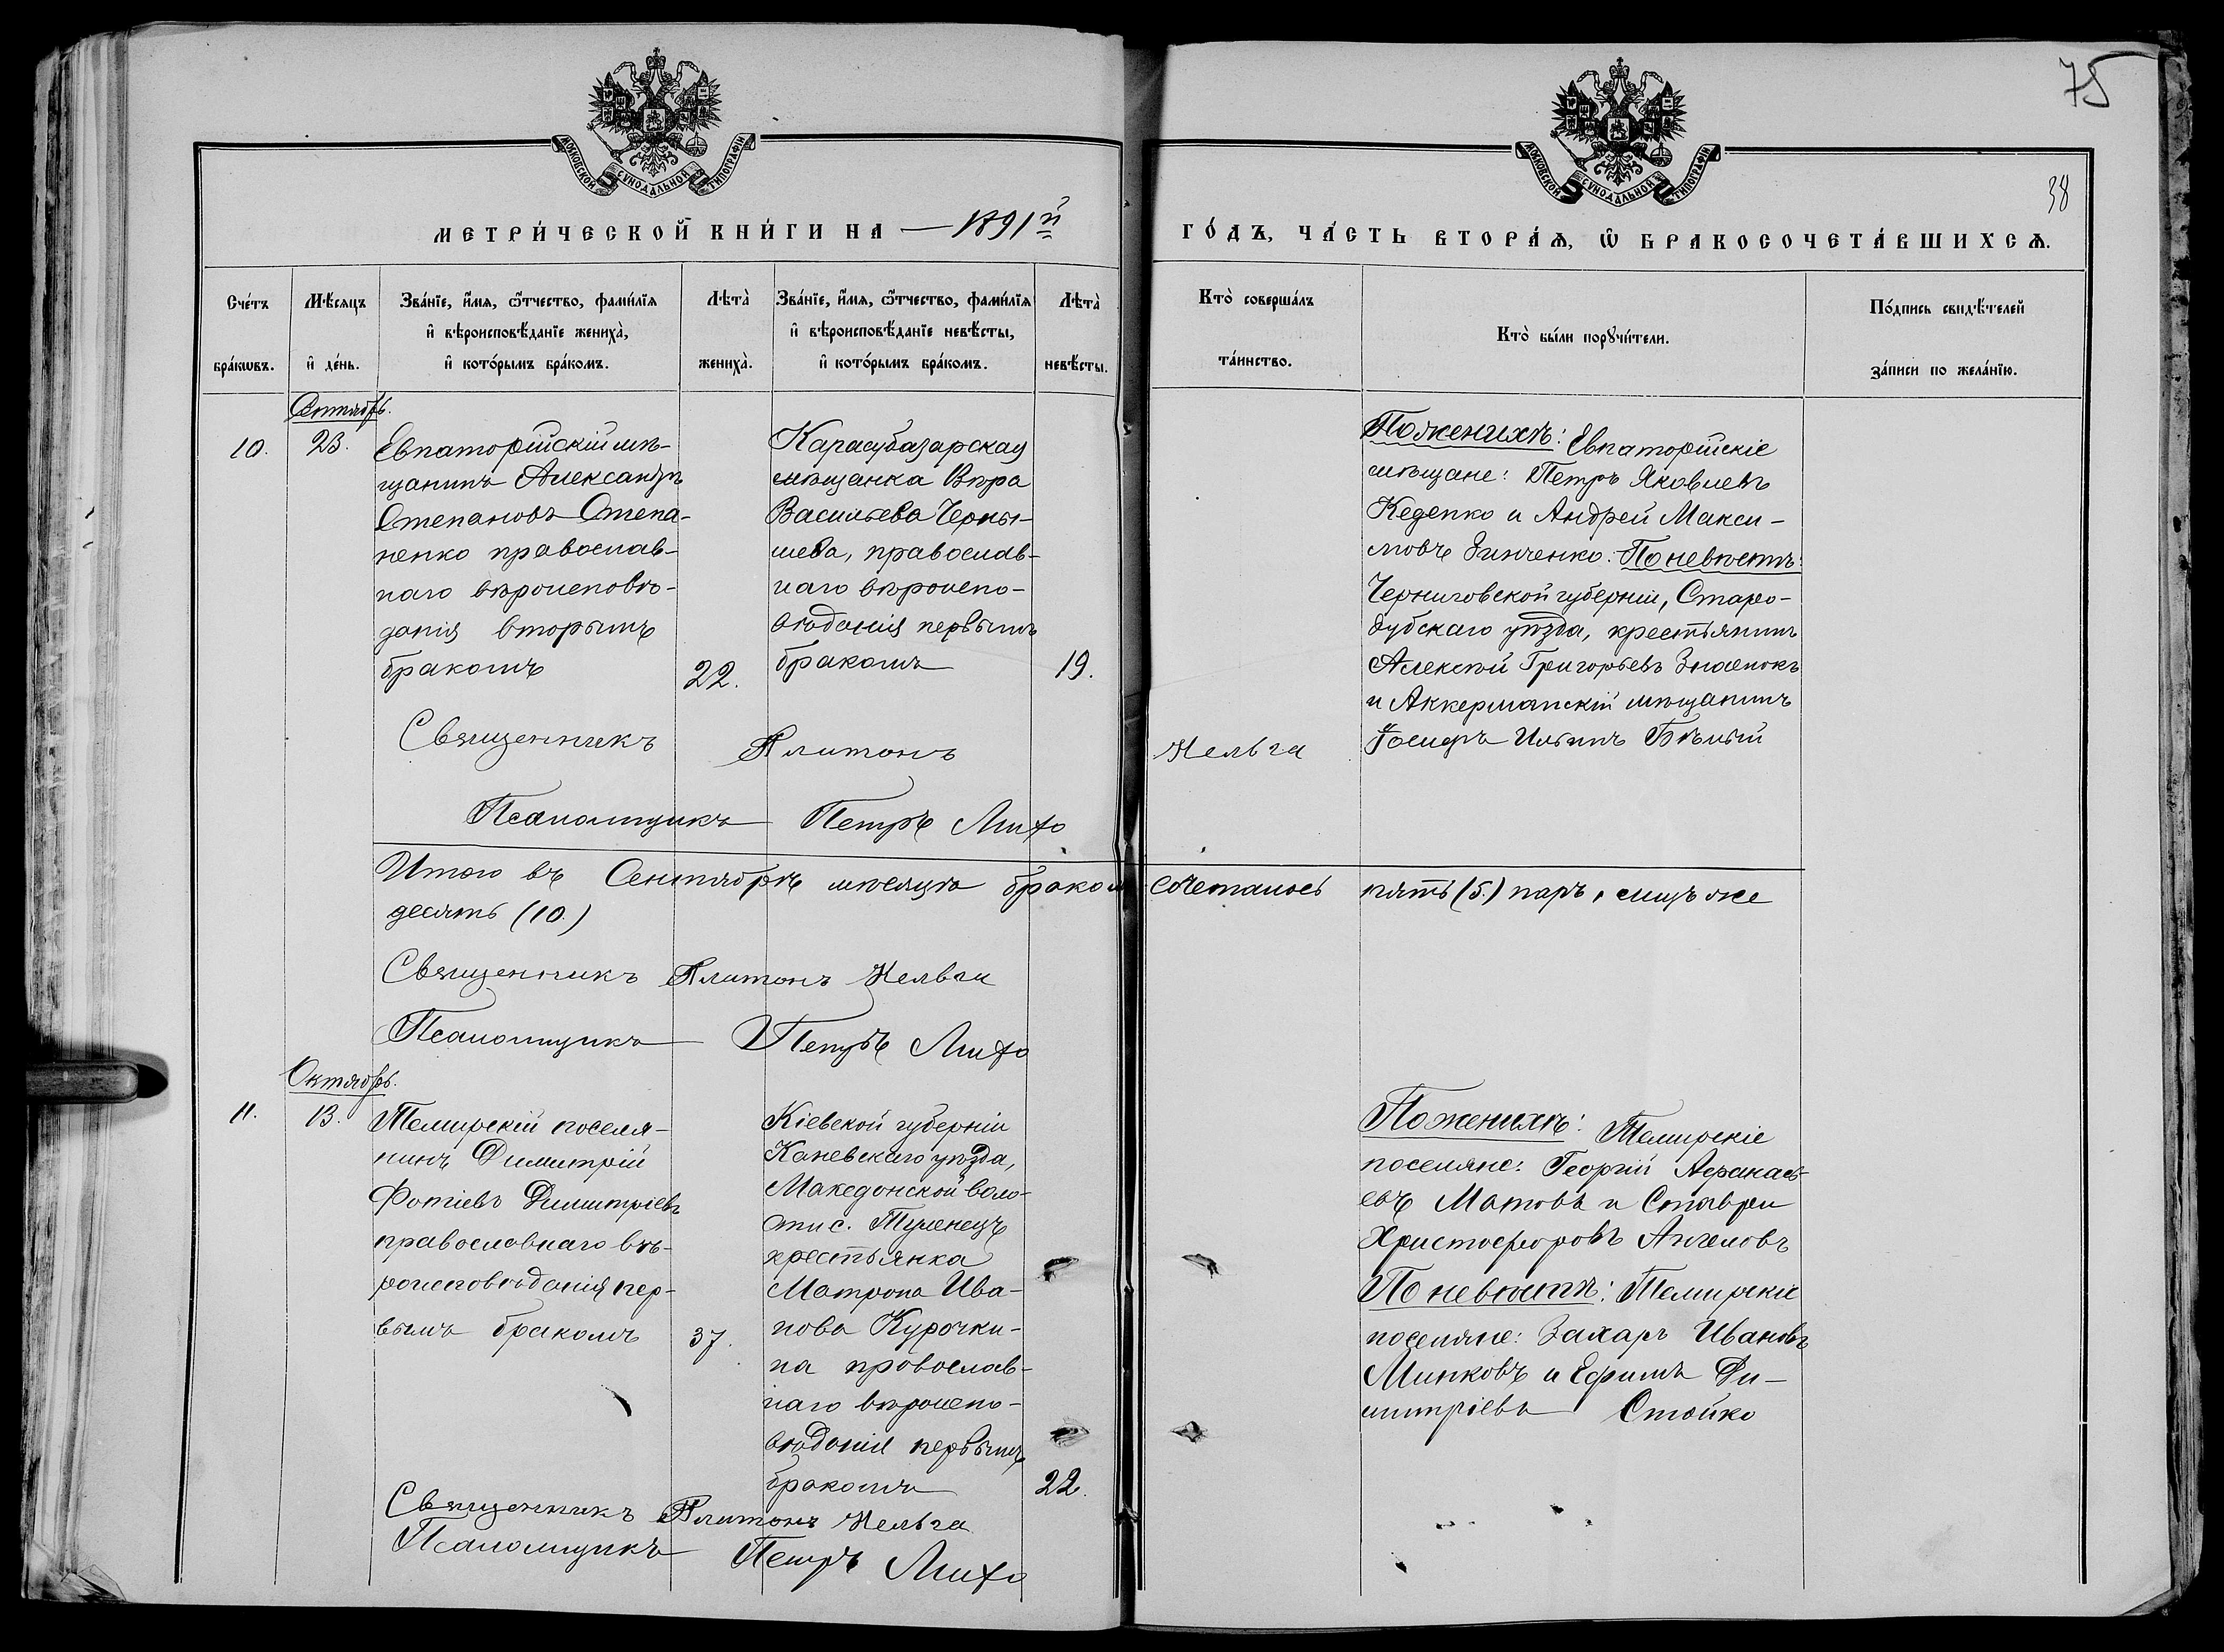 75
38
МОСКОВСКОЙ СѴНОДАЛЬНОЙ ТИПОГРАФІИ
МОСКОВСКОЙ СѴНОДАЛЬНОЙ ТИПОГРАФІИ
МЕТРИ́ЧЕСКОЙ КНИ́ГИ НА — 1891 й
ГО́ДЪ, ЧА́СТЬ ВТОРА́Ѧ, Ѡ҆ БРАКОСОЧЕТА́ВШИХСѦ.
Сче́тъ бра́кѡвъ.
Мѣ́сяцъ и҆ де́нь.
Зва́нїе, и҆́мя, ѻ҆́тчество, фами́лїя и҆ вѣроисповѣ́данїе жениха̀, и҆ кото́рымъ бра́комъ.
Лѣта̀ жениха̀.
Зва́нїе, и҆́мя, ѻ҆́тчество, фами́лїя и҆ вѣроисповѣ́данїе невѣ́сты, и҆ кото́рымъ бра́комъ.
Лѣта̀ невѣ́сты.
Кто̀ соверша́лъ та́инство.
Кто̀ бы́ли порꙋчи́тели.
По́дпись свидѣ́телей за́писи по жела́нїю.
Сентябрь.
10.
23.
Евпаторійскій мѣ-
щанинъ Александръ
Степановъ Степа-
ненко православ-
наго вѣроисповѣ-
данія вторымъ
бракомъ
22.
Карасубазарская
мѣщанка Вѣра
Васильева Черны-
шева, православ-
наго вѣроиспо-
вѣданія первымъ
бракомъ
19.
По женихѣ: Евпаторійскіе
мѣщане: Петръ Яковлевъ
Кеденко и Андрей Макси-
мовъ Зинченко. По невѣстѣ:
Черниговской губерніи, Старо-
дубскаго уѣзда, крестьянинъ
Алексѣй Григорьевъ
и Аккерманскій мѣщанинъ
Іосифъ Ильинъ Бѣлый
Священникъ Платонъ Кельга
Псаломщикъ Петръ Лихо
Итого въ Сентябрѣ мѣсяцѣ браком сочеталось пять (5.) паръ, лицъ же
десять (10.)
Священникъ Платонъ Кельга
Псаломщикъ Петръ Лихо
Октябрь.
11.
13.
Темирскій поселя-
нинъ Димитрій
Фотіевъ Димитріевъ
православнаго вѣ-
роисповѣданія пер-
вымъ бракомъ
37.
Кіевской губерніи
Каневскаго уѣзда,
Македонской воло-
сти с. Тулинецъ
крестьянка
Матрона Ива-
нова Курочки-
на православ-
наго вѣроиспо-
вѣданія первымъ
бракомъ
22.
По женихѣ: Темирскіе
поселяне: Георгій Афанась-
евъ Матовъ и Ставри
Христофоровъ Ангеловъ
По невѣстѣ: Темирскіе
поселяне: Захаръ Ивановъ
Минковъ и Ефимъ Ди-
митріевъ Стойко
Священникъ Платонъ Кельга
Псаломщикъ Петръ Лихо